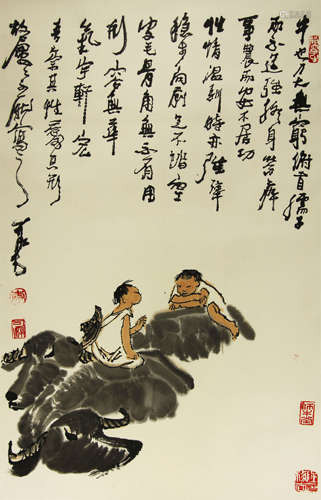 牛也力大無窮俯首孺子
而不逞強終身勞瘁
事農而安不居功
性情溫馴時亦強犟
穩步向前足不踏空
皮毛骨角無不有用
形容無華
氣宇軒宏
吾崇其性愛其形
故屢屢不厭寫之
可染